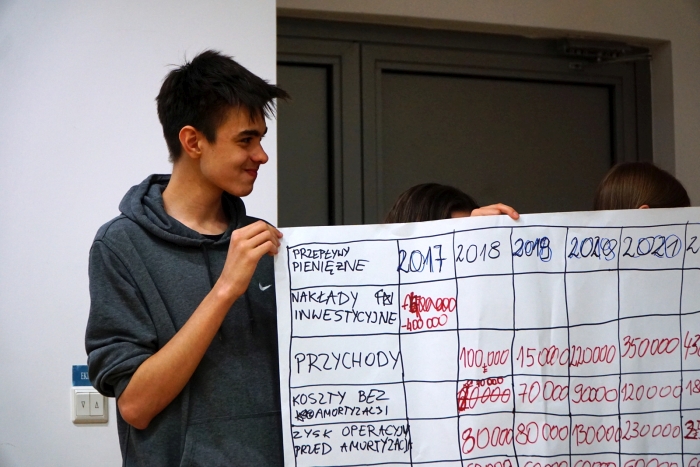 PRZEPŁYWY
PIENIĘŻNE
2017 2018 2019 2020 2021 2
NAKŁADY
INWESTYCYJNE
-400 000
PRZYCHODY 100,000 150000 220000 350000 43
KOSZTY BEZ
AMORTYZACJI 70000 90000 120000 18
ZYSK OPERACYJN
PRZED AMORTYZACJĄ 80000 80000 130000 230000